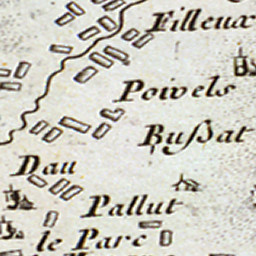 Filleux
Poivels
Bußat
Dau
Pallut
le Parc